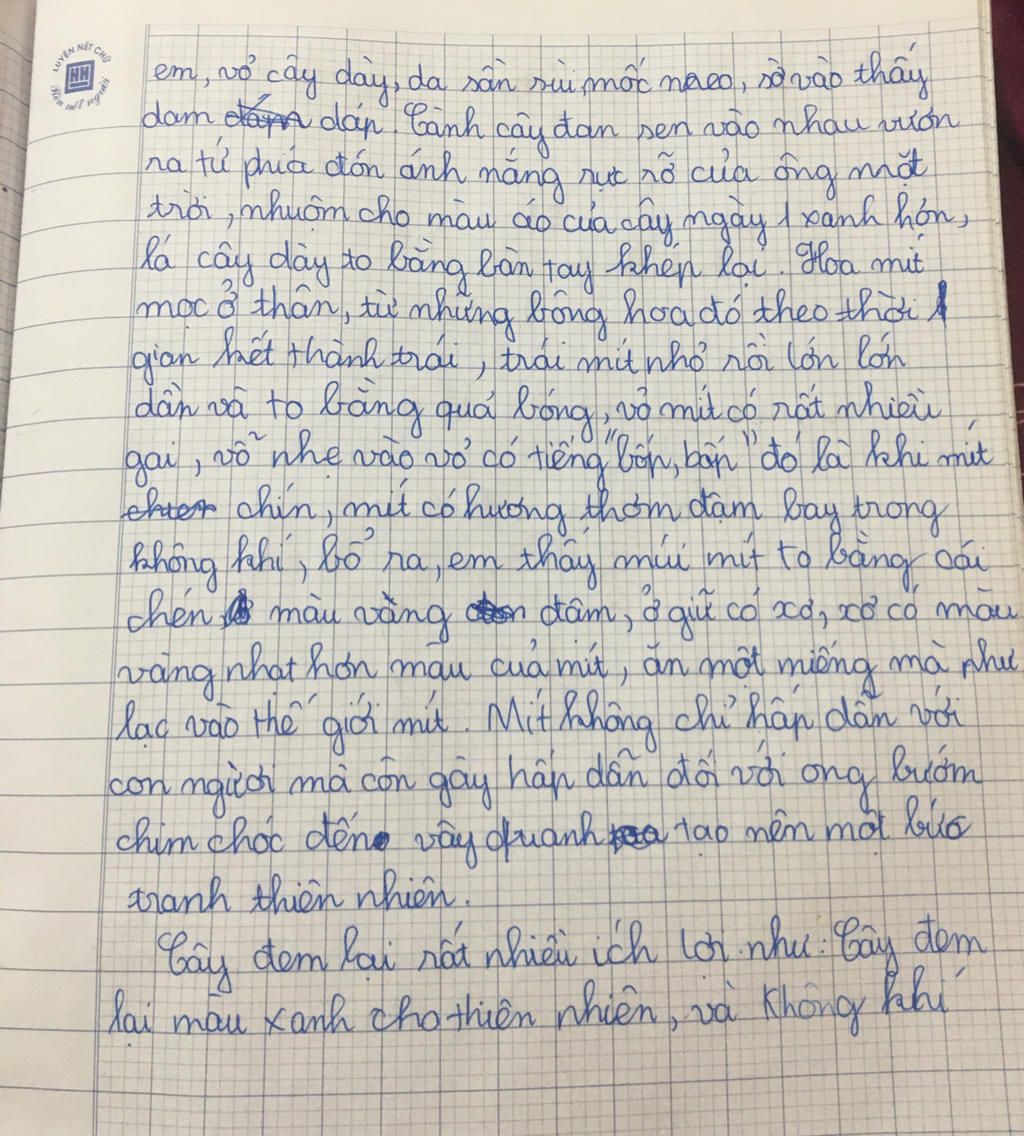 LUYỆN NÉT CHỮ
HH
Rèn nết người
em, vỏ cây dày, da sần sùi, mốc meo, sờ vào thấy
dam dáp. Cành cây đan sen vào nhau vươn
ra tứ phía đón ánh nắng rực rỡ của ông mặt
trời, nhuộm cho màu áo của cây ngày 1 xanh hơn,
lá cây dày to bằng bàn tay khép lại. Hoa mít
mọc ở thân, từ những bông hoa đó theo thời
gian kết thành trái, trái mít nhỏ rồi lớn lớn
dần và to bằng quả bóng, vỏ mít có rất nhiều
gai, vỗ nhẹ vào vỏ có tiếng "bốp, bốp" đó là khi mít
chín, mít có hương thơm đậm bay trong
không khí, bổ ra, em thấy múi mít to bằng cái
chén màu vàng đậm, ở giữ có xơ, xơ có màu
vàng nhạt hơn màu của mít, ăn một miếng mà như
lạc vào thế giới mít. Mít không chỉ hấp dẫn với
con người mà còn gây hấp dẫn đối với ong bướm
chim chóc đến vây quanh tạo nên một bức
tranh thiên nhiên.
Cây đem lại rất nhiều ích lợi như: Cây đem
lại màu xanh cho thiên nhiên, và không khí